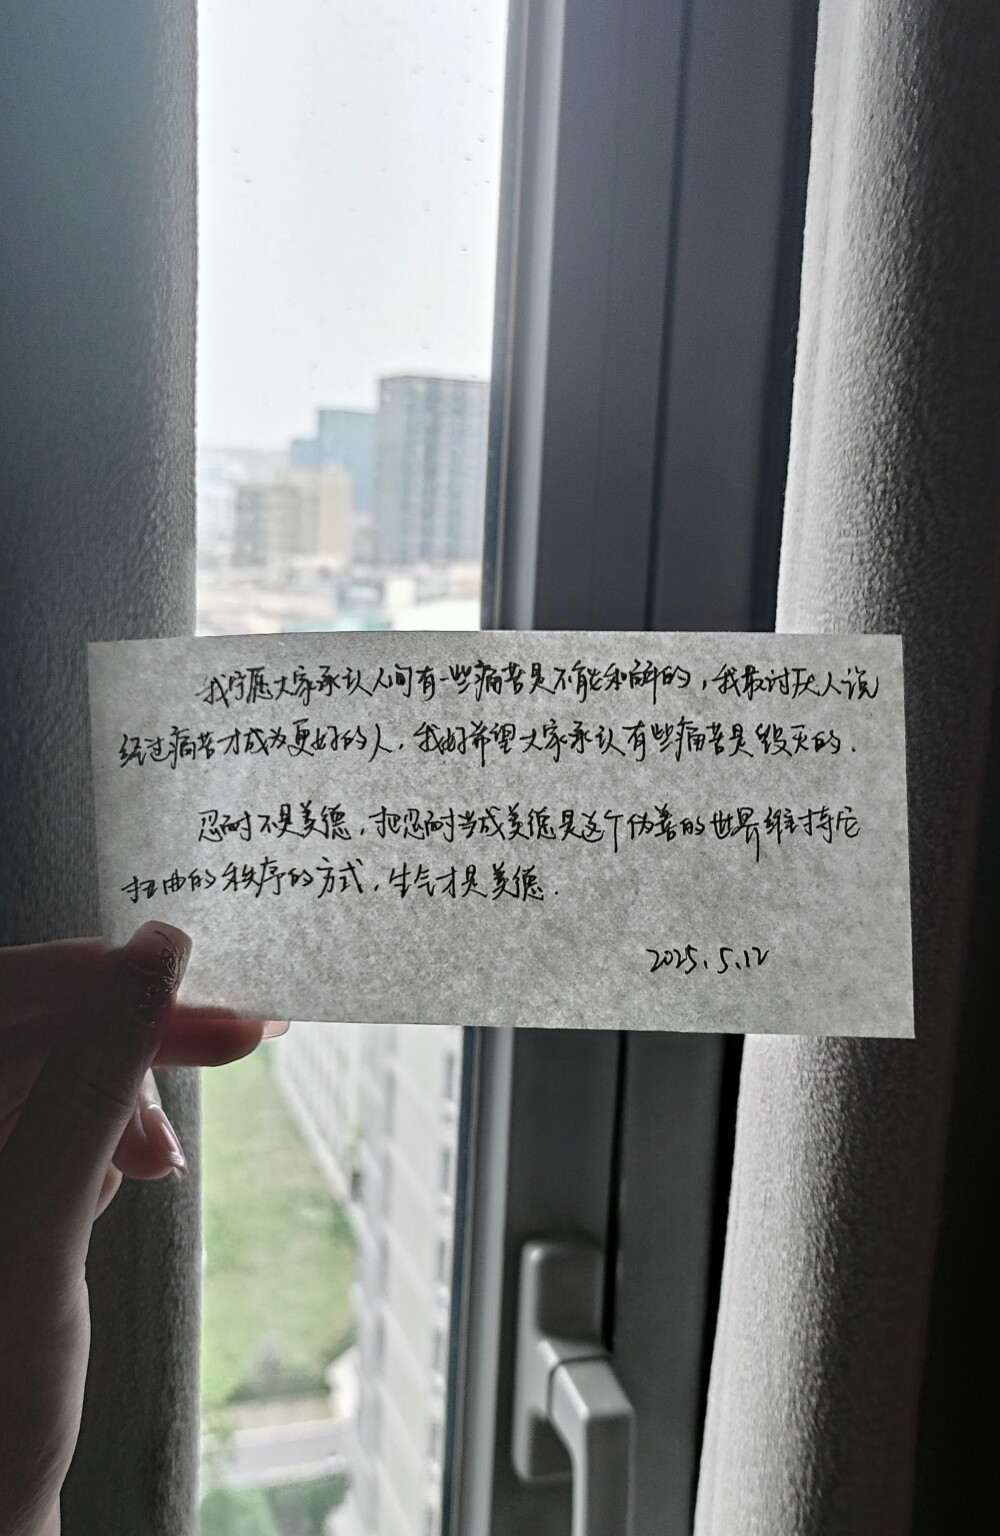 我宁愿大家承认人间有一些痛苦是不能和解的，我最讨厌人说
经过痛苦才成为更好的人，我好希望大家承认有些痛苦是毁灭的.
忍耐不是美德，把忍耐当成美德是这个伪善的世界维持它
扭曲的秩序的方式，生气才是美德.
2025.5.12